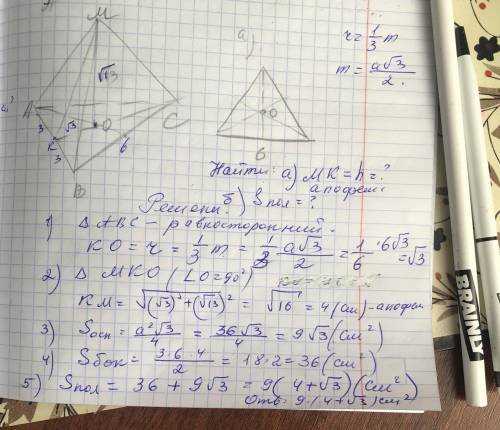 M
а)
r = 1/3 m
m = a√3/2.
√13
A
O
C
3
√3
K
3
6
B
O
6
Найти: а) MK = h = ?
апофема
б) Sпол = ?
Решение:
1) Δ ABC – равносторонний.
KO = r = 1/3 m = 1/3 a√3/2 = 1/6 · 6√3 = √3
2) Δ MKO (∠O = 90°)
KM = √(√3)² + (√13)² = √16 = 4 (см) - апофем
3) Sосн = a²√3/4 = 36√3/4 = 9√3 (см²)
4) Sбок = 3·6·4/2 = 18·2 = 36 (см²)
5) Sпол = 36 + 9√3 = 9(4+√3) (см²)
Отв: 9·(4+√3) см²
BRAINLY